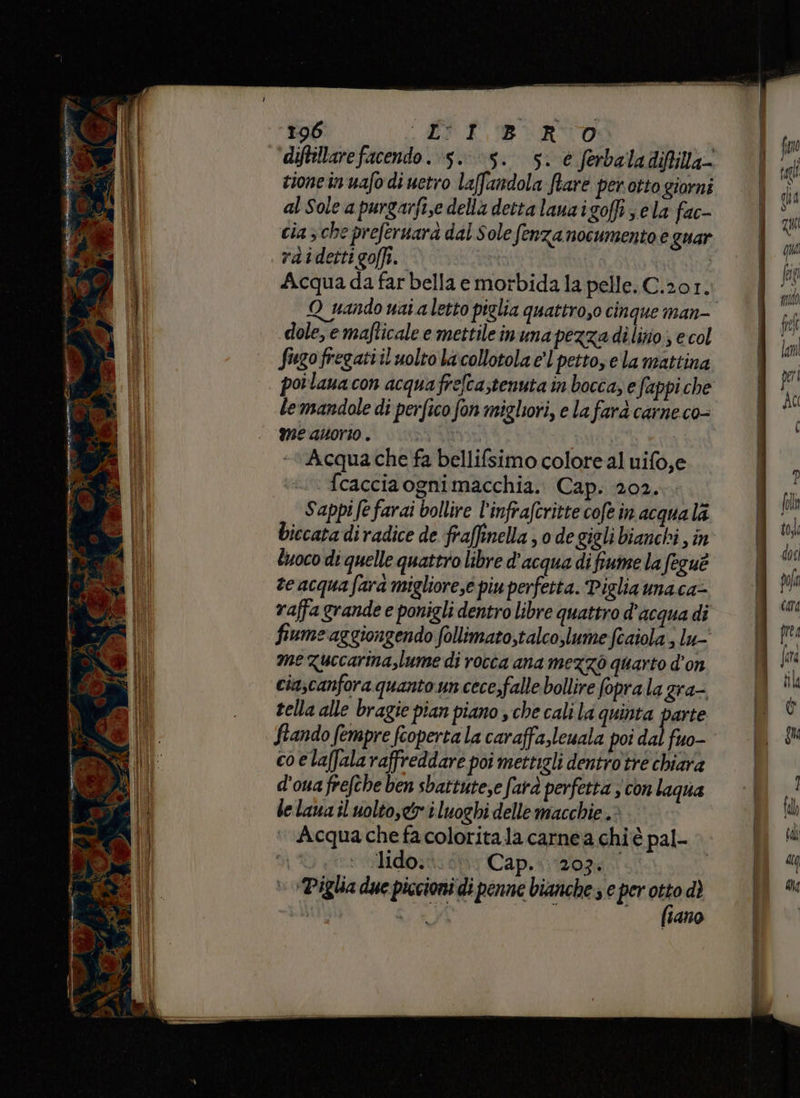 196 L I B R O
distillare facendo. 5. 5. 5. e serbala distilla-
tione in uaso di uetro lassandola stare per otto giorni
al Sole a purgarsi,e della detta laua i goffi, e la fac-
cia, che preseruarà dal Sole senza nocumento e guar
rà i detti goffi.
Acqua da far bella e morbida la pelle. C.201.
Quando uai a letto piglia quattro,o cinque man-
dole, e masticale e mettile in una pezza di lino, e col
sugo fregati il uolto la collotola e'l petto, e la mattina
poi laua con acqua fresca,tenuta in bocca, e sappi che
le mandole di persico son migliori, e la farà carne co-
me auorio.
Acqua che fa bellissimo colore al uiso,e
scaccia ogni macchia. Cap. 202.
Sappi se farai bollire l'infrascritte cose in acqua lã
biccata di radice de frassinella, o de gigli bianchi, in
luoco di quelle quattro libre d'acqua di fiume la seguẽ
te acqua sarà migliore,e piu perfetta. Piglia una ca-
raffa grande e ponigli dentro libre quattro d'acqua di
fiume aggiongendo sollimato,talco,lume scaiola, lu-
me zuccarina,lume di rocca ana mezzo quarto d'on
cia,canfora quanto un cece,falle bollire sopra la gra-
tella alle bragie pian piano, che cali la quinta parte
stando sempre scoperta la caraffa,leuala poi dal fuo-
co e lassala raffreddare poi mettigli dentro tre chiara
d'oua fresche ben sbattute,e sarà perfetta, con laqua
le laua il uolto,& i luoghi delle macchie.
Acqua che fa colorita la carne a chi è pal-
lido. Cap. 203.
Piglia due piccioni di penne bianche, e per otto dì
siano